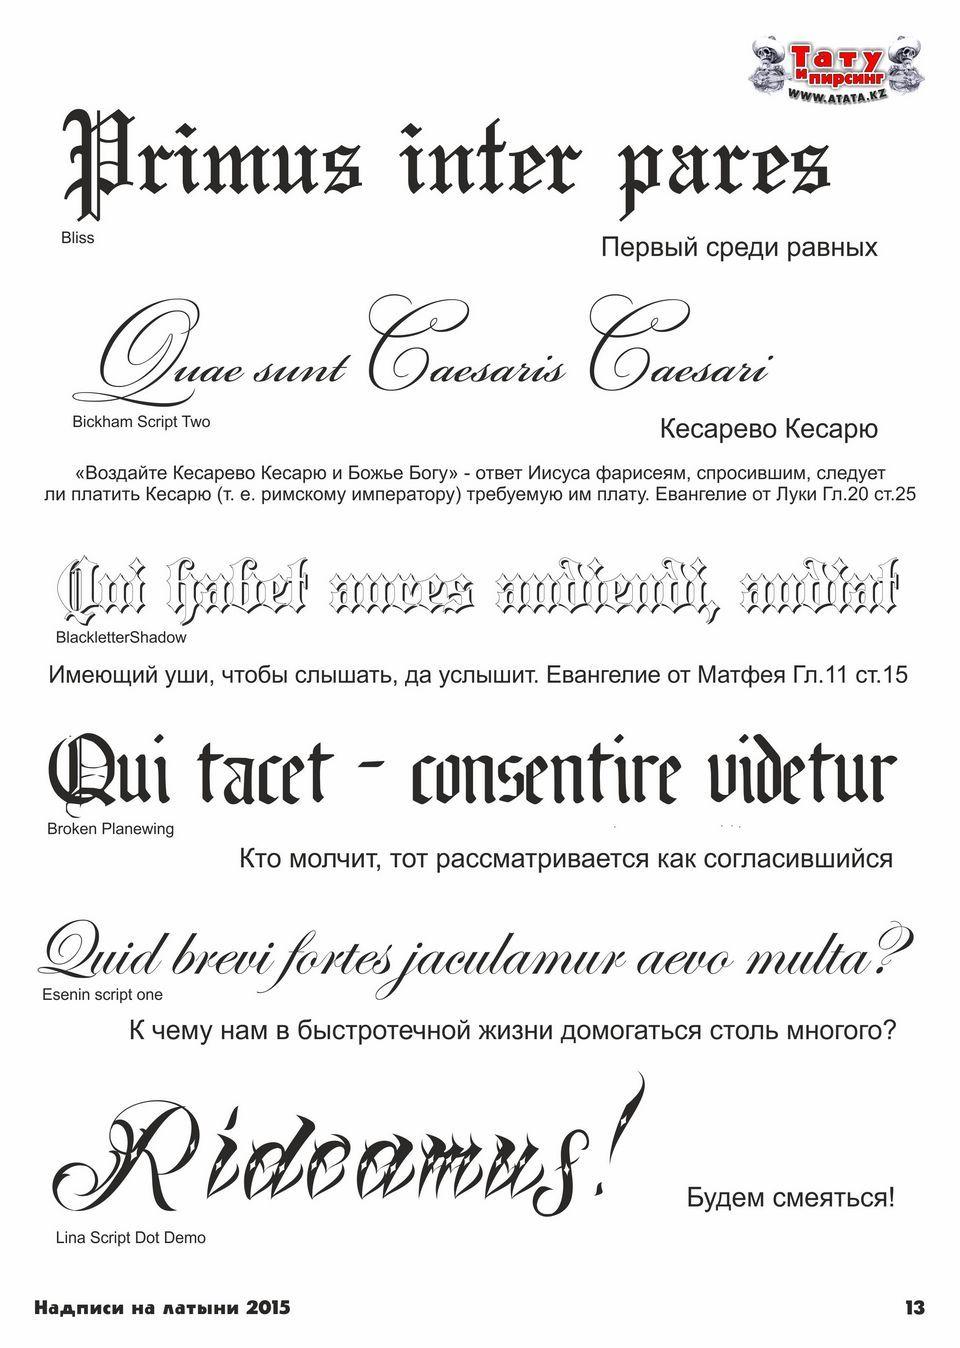 Тату
и пирсинг
WWW.ATATA.KZ
Primus inter pares
Bliss
Первый среди равных
Quae sunt Caesaris Caesari
Bickham Script Two
Кесарево Кесарю
«Воздайте Кесарево Кесарю и Божье Богу» - ответ Иисуса фарисеям, спросившим, следует
ли платить Кесарю (т. е. римскому императору) требуемую им плату. Евангелие от Луки Гл.20 ст.25
Qui habet aures audiendi, audiat
BlackletterShadow
Имеющий уши, чтобы слышать, да услышит. Евангелие от Матфея Гл.11 ст.15
Qui tacet - consentire videtur
Broken Planewing
Кто молчит, тот рассматривается как согласившийся
Quid brevi fortes jaculamur aevo multa?
Esenin script one
К чему нам в быстротечной жизни домогаться столь многого?
Rideamus!
Будем смеяться!
Lina Script Dot Demo
Надписи на латыни 2015
13